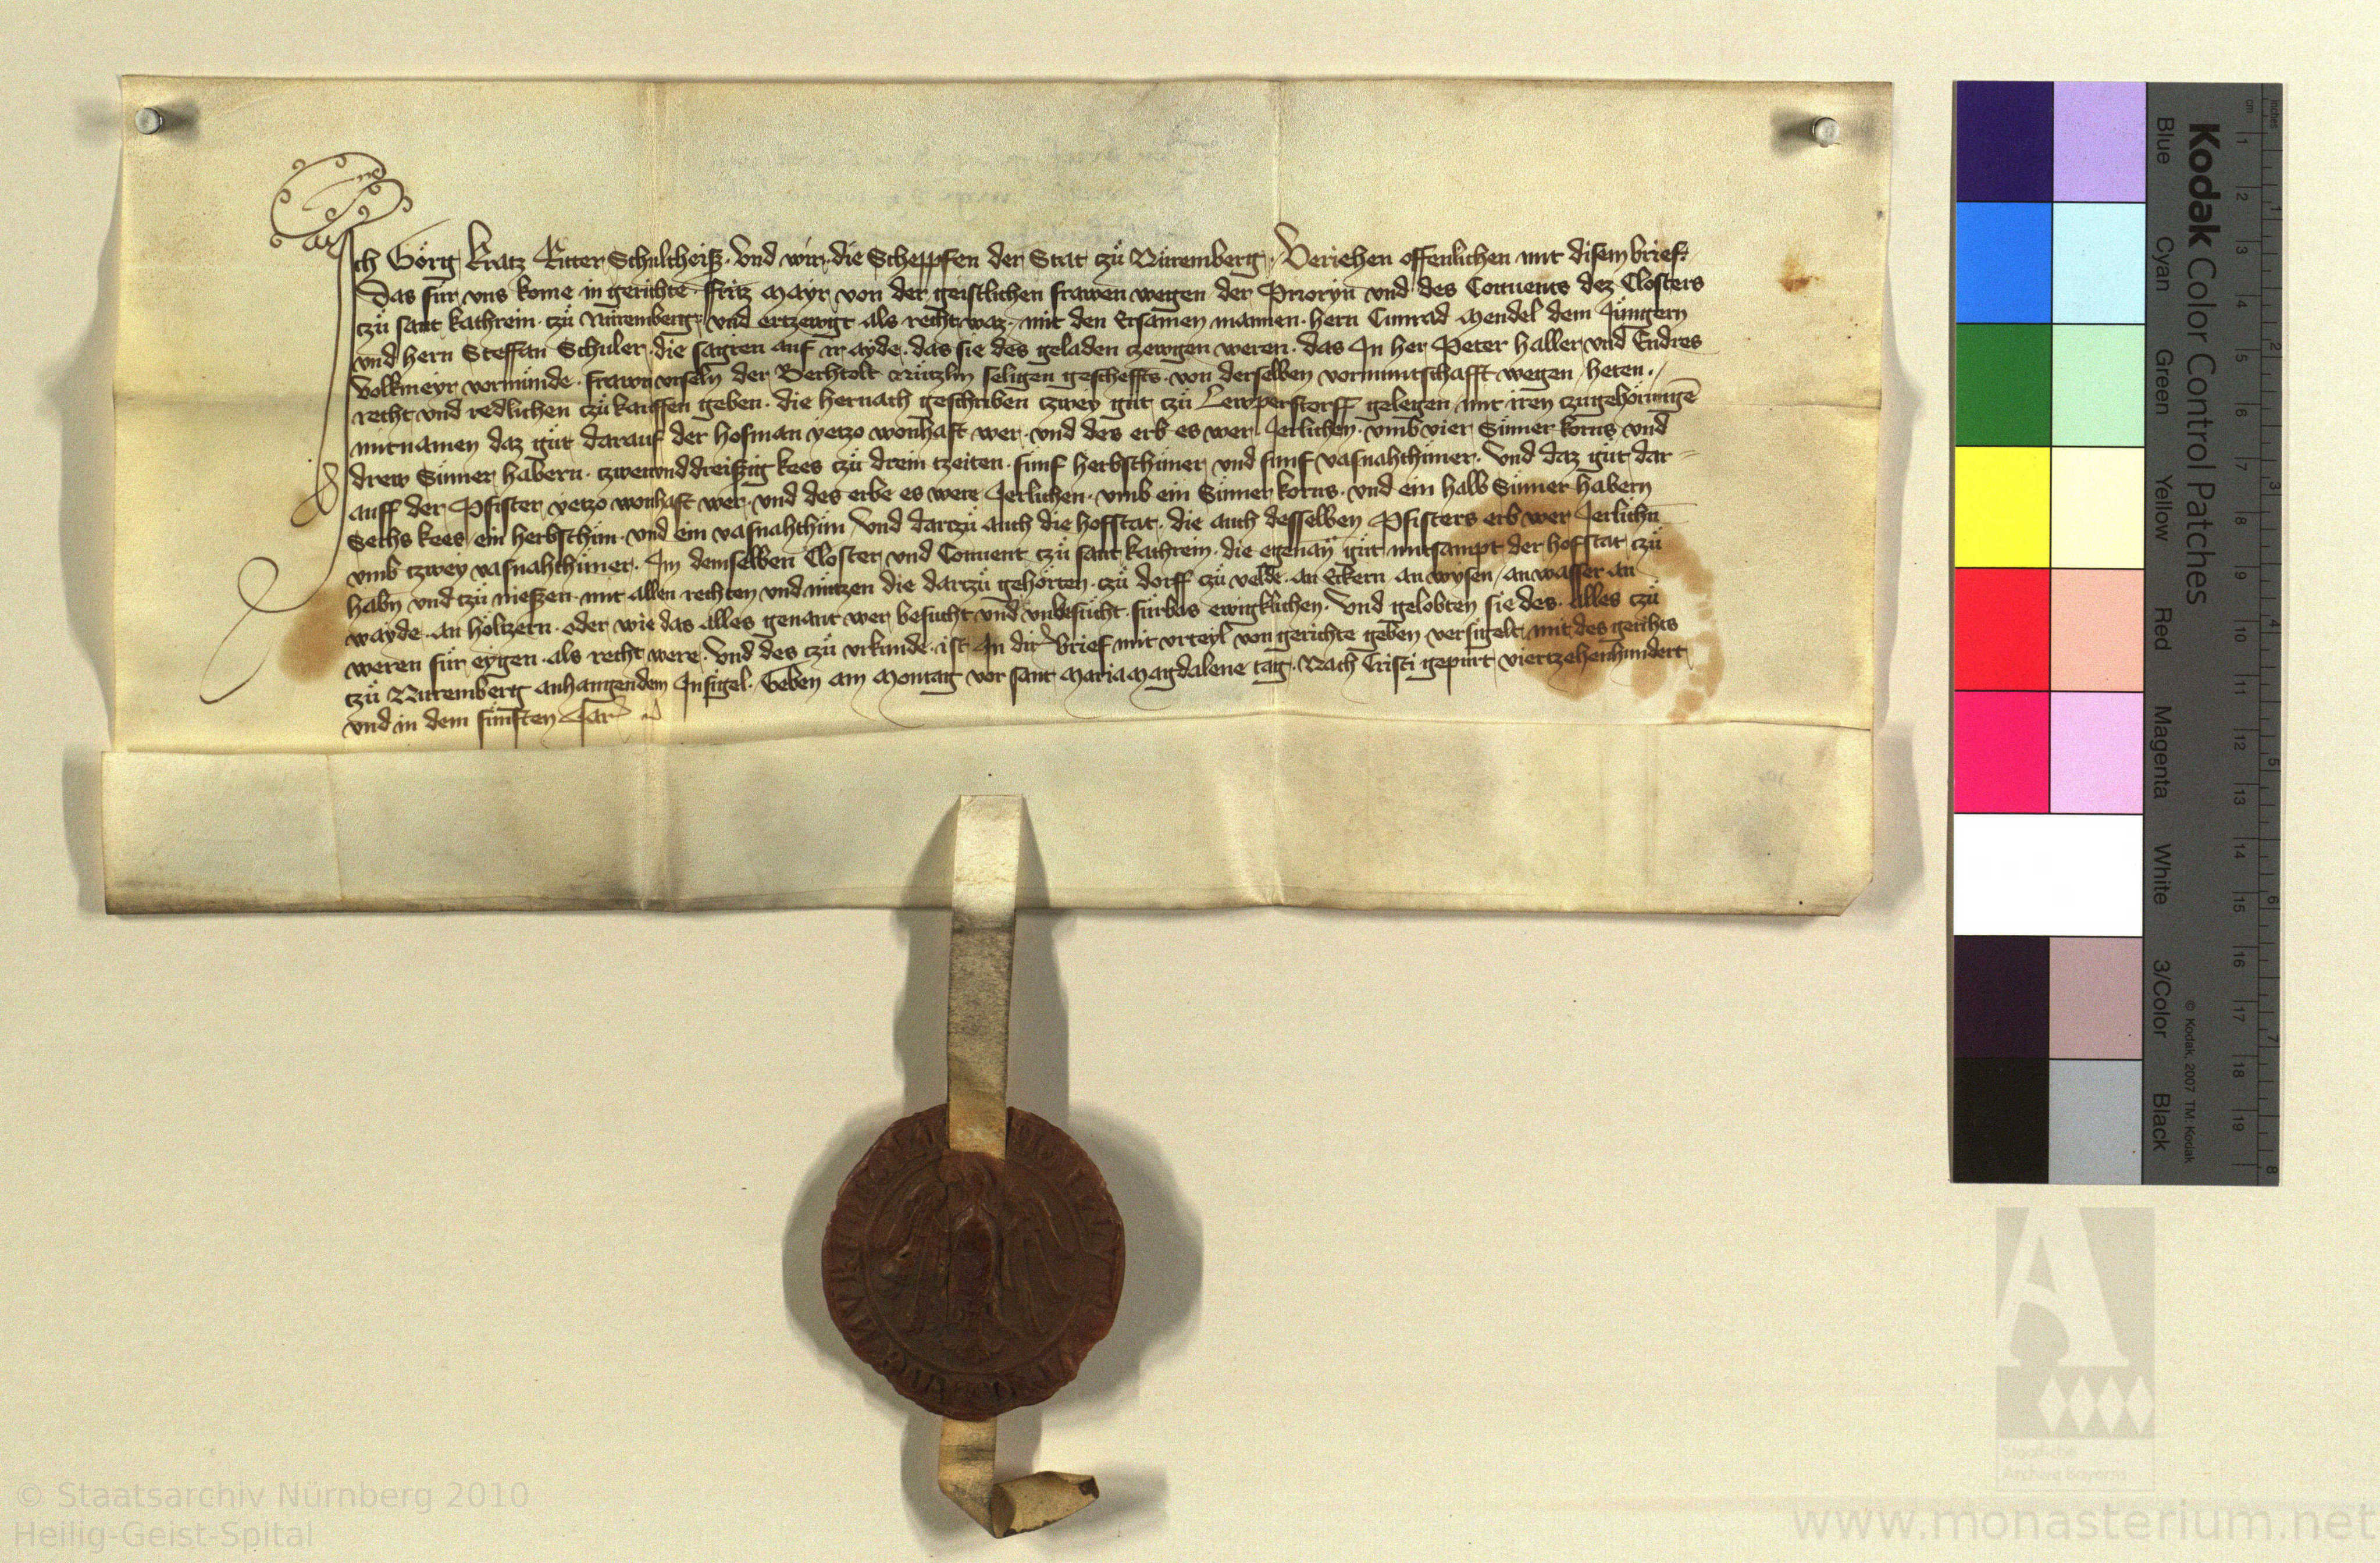 Ich Görg Kratz Ritter Schultheiß· Vnd wir· die Scheppfen der Stat czü Nüremberg· Veriehen offenlichen mit disem brief·
Das für vns kome in gerichte· ffritz Mayr von der geistlichen frawen wegen der Prioryn vnd des Conuents dez Closters
czü sant kathrein· czü Nüremberg· vnd ertzewgt als recht waz· mit den Ersamen mannen· hern Cunrad Mendel dem Jüngern
vnd hern Steffan Schuler· die sagten auf ir ayde· das sie des geladen czewgen weren· das In her Peter Haller vnd Endres
Volkmeyr vormünde· frawn vrseln der Bechtolt seligen gescheffts· von derselben vormuntschafft wegen heten·
recht vnd redlichen czü kauffen geben· die hernach geschriben czwey güt czü Lewperstorff gelegen mit iren czugehörungē
mitnamen daz güt darauf der hofman yetzo wonhaft wer· vnd des erb es wer Jerlichen· vmb vier Sümer korns vnd
drew Sümer habern· czwenvnddreißig kees czü drein tzeiten· fünf herbsthüner vnd fünf vasnahthüner· Vnd daz güt dar=
auff der Pfister yetzo wonhaft wer· vnd des erbe es were Jerlichen· vmb ein Sümer korns· vnd ein halb Sümer habern
Sechs kees ein herbsthün· vnd ein vasnahthün Vnd dartzü auch die hofstat· die auch desselben Pfisters erb wer Jerlichn
vmb czwey vasnahthüner· Im demselben Closter vnd Conuent czü sant kathrein· die egenan̄ güt mitsampt der hofstat czü
habn̄ vnd czü nießen· mit allen rechten vnd nützen die dartzü gehörten· czü dorff czü velde· an Eckern an wysen an wasser an
wayde· an höltzern· oder wie das alles genant wer besucht vnd vnbesücht· fürbas ewigklichen· Vnd gelobten sie des alles czü
weren für eygen als recht were· Vnd des czü vrkunde· ist In dir brief mit vrteyl von gerichte geben versigelt mit des gerihts
czü Nüremberg anhangendem Insigel· Geben am Montag vor sant Mariamagdalene tag· Nach Cristi gepürt viertzehenhundert
vnd in dem fünften Jar
Kodak Color Control Patches
Blue Cyan Green Yellow Red Magenta White 3/Color Black
© Kodak, 2007 TM: Kodak
inches 1 2 3 4 5 6 7 8
cm 1 2 3 4 5 6 7 8 9 10 11 12 13 14 15 16 17 18 19
Staatliche
Archive Bayerns
© Staatsarchiv Nürnberg 2010
Heilig-Geist-Spital
www.monasterium.net